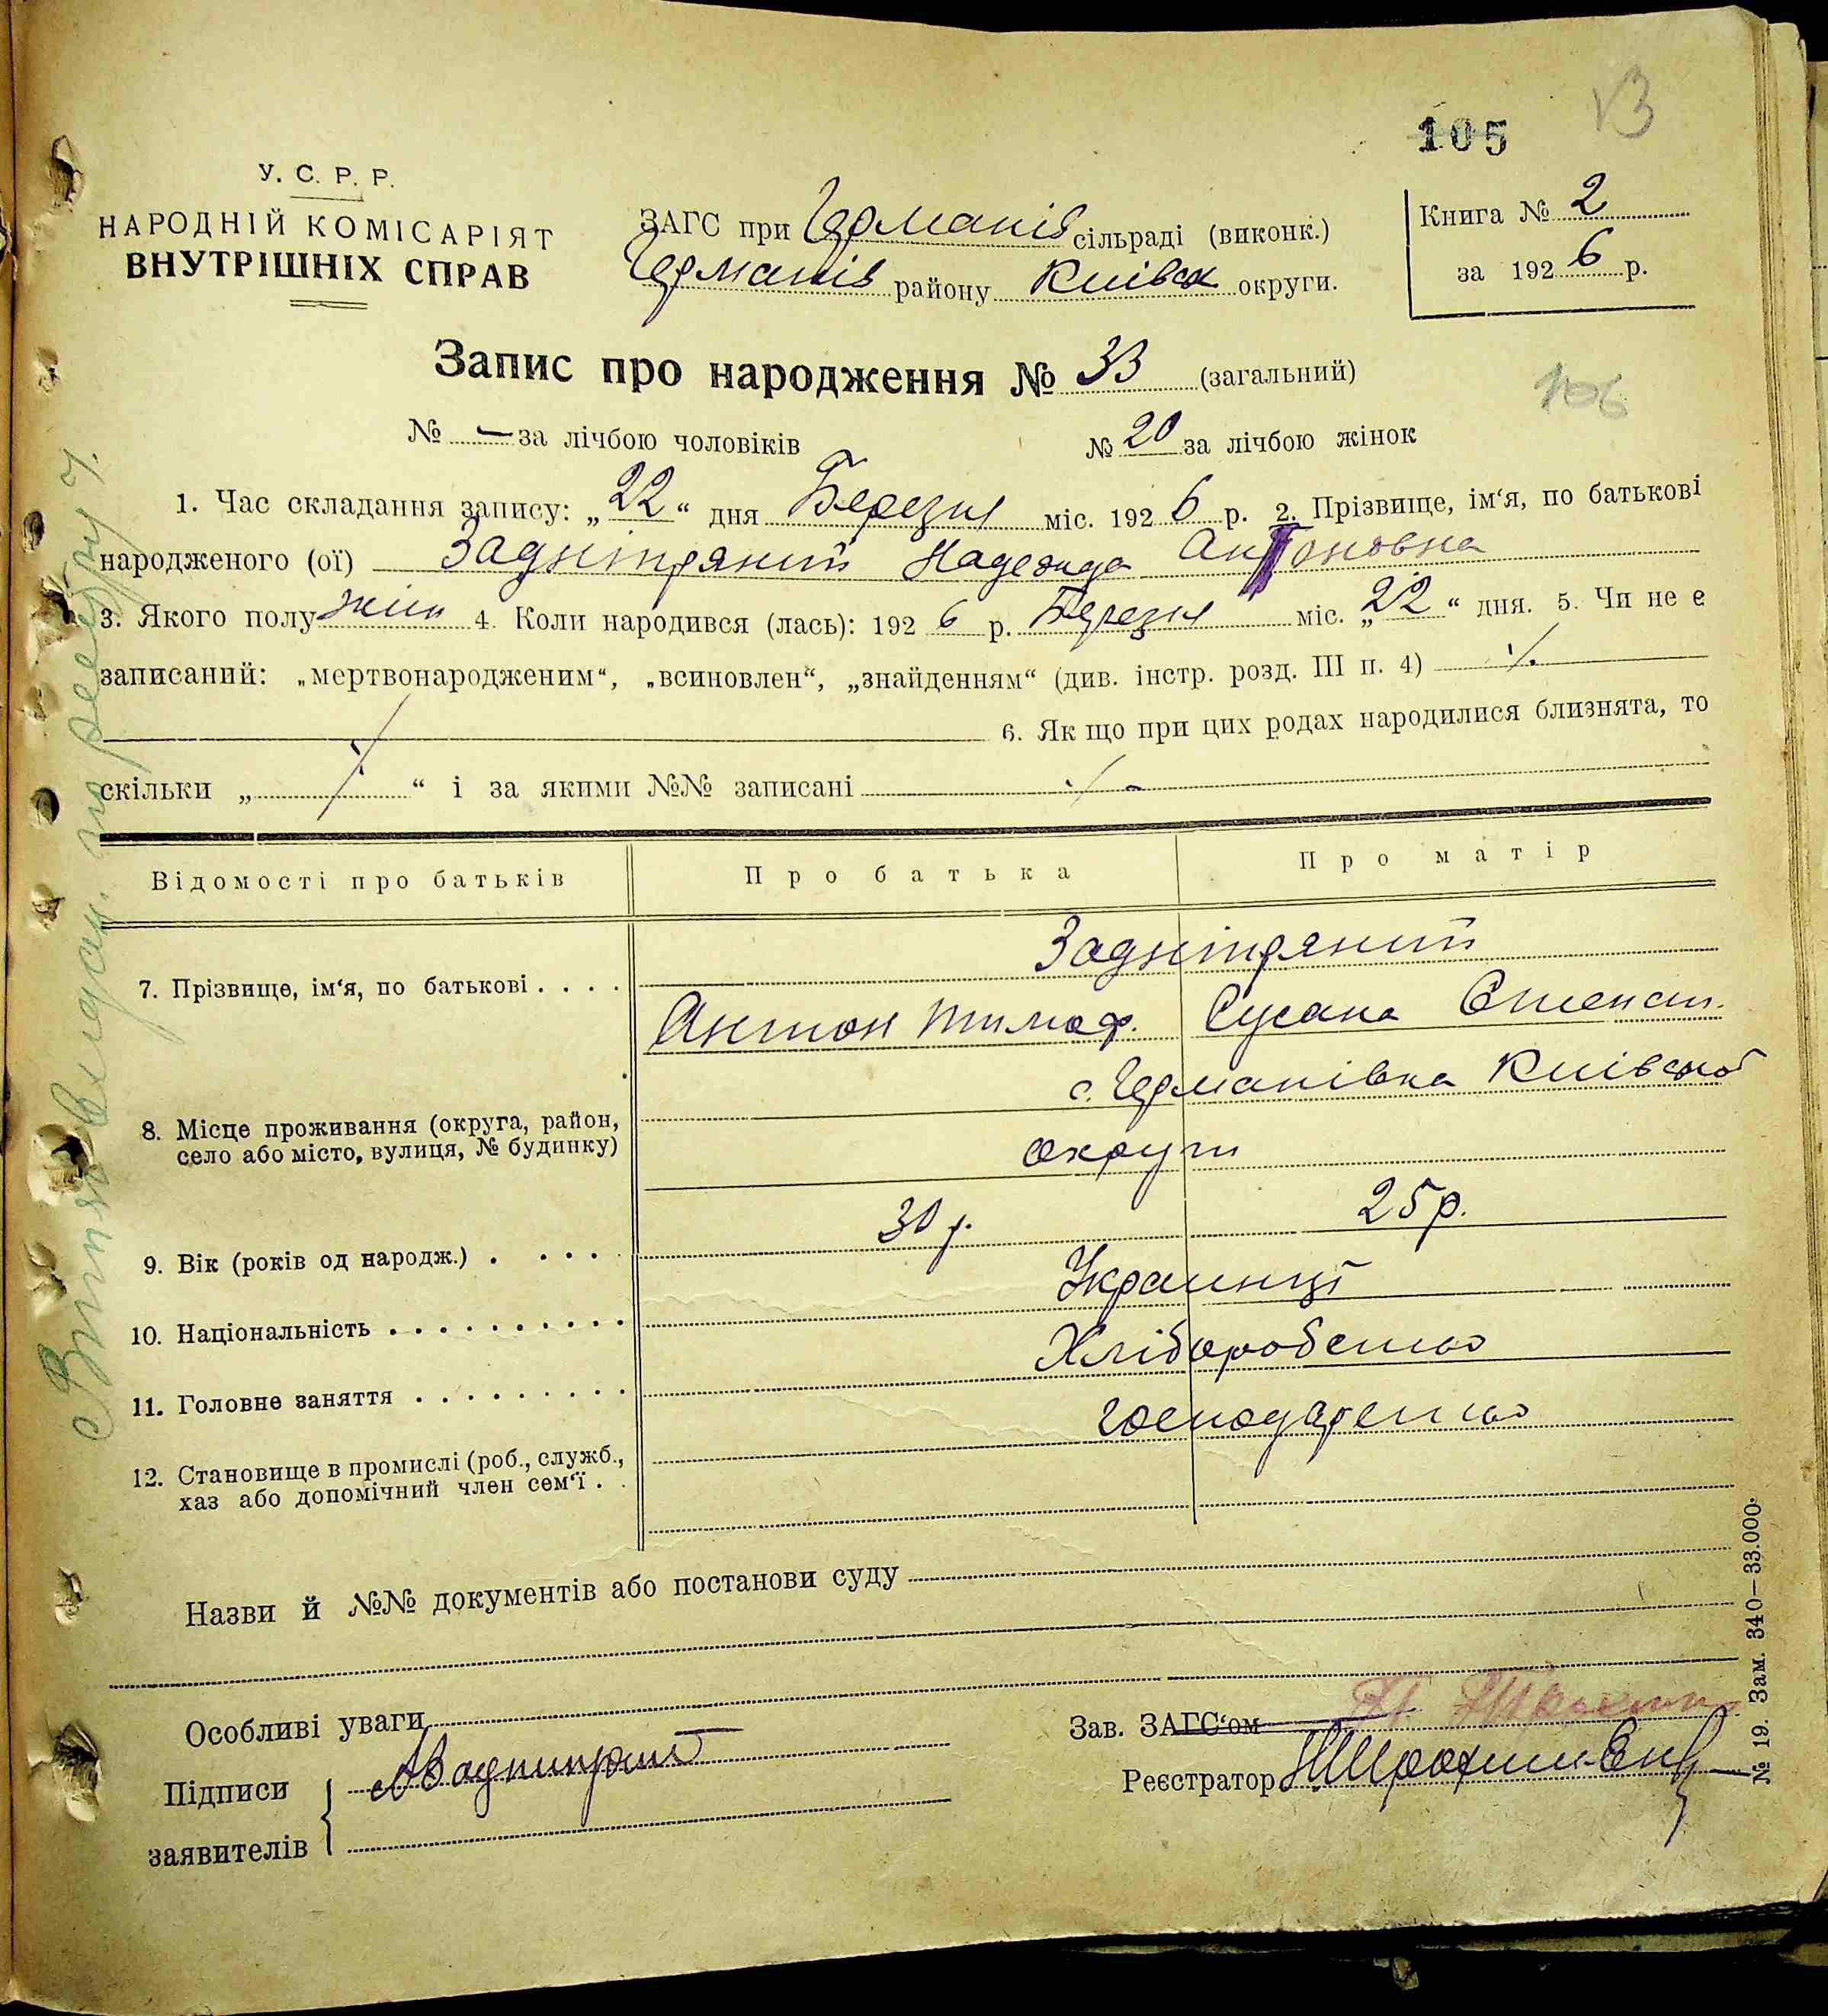 105 13
У. С. Р. Р.
НАРОДНІЙ КОМІСАРІЯТ
ВНУТРІШНІХ СПРАВ
ЗАГС при Германів сільраді (виконк.)
Германів району Київськ округи.
Книга № 2
за 1926 р.
Запис про народження № 33 (загальний)
106
№ — за лічбою чоловіків № 20 за лічбою жінок
1. Час складання запису: „22“ дня Березня міс. 1926 р. 2. Прізвище, ім‘я, по батькові
народженого (ої) Задніпряний Надежда Антоновна
3. Якого полу жін 4. Коли народився (лась): 1926 р. Березня міс. „22“ дня. 5. Чи не є
записаний: „мертвонародженим“, „всиновлен“, „знайденням“ (див. інстр. розд. III п. 4) ·/.
6. Як що при цих родах народилися близнята, то
скільки „ ·/. “ і за якими №№ записані ·/.
Відомості про батьків Про батька Про матір
Задніпряний
7. Прізвище, ім‘я, по батькові . . . .
Антон Тимоф. Сусана Степан.
с. Германівка Київської
8. Місце проживання (округа, район,
село або місто, вулиця, № будинку)
округи
9. Вік (років од народж.) . . . . 30 р. 25 р.
10. Національність . . . . . . . . . . Украинці
11. Головне заняття . . . . . . . . . Хліборобство
12. Становище в промислі (роб., служб.,
хаз або допомічний член сем‘ї . . господарство
Назви й №№ документів або постанови суду
Особливі уваги
Зав. ЗАГС‘ом
Підписи
заявителів
АЗаднипряний
Реєстратор
№ 19. Зам. 340—33.000.
Витяг видан. по реєстру